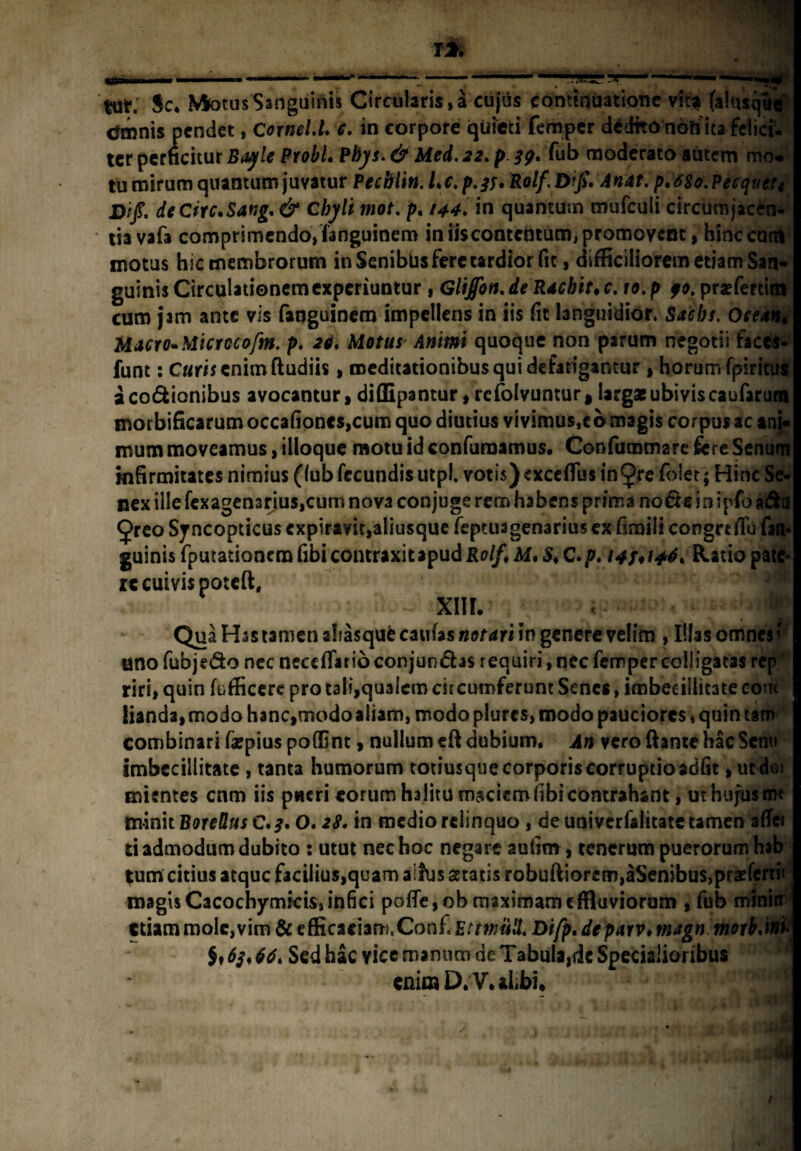 12.
tur. Sc. Motus Sanguinis Circularis, à cujus continuatione vita salusque
omnis pendet, Cornel.l. c. in corpore quieti semper dedito non ita felici-
ter perficitur Bayle Probl. Phys. & Med. 22. p. 39. sub moderato autem mo-
tu mirum quantum juvatur Pechlin. l. c. p. 35. Rolf. Diss. Anat. p. 680. Pecquet,
Diss. de Circ. Sang. & Chyli mot. p. 144. in quantum musculi circumjacen-
tia vasa comprimendo, sanguinem in iis contentum, promovent, hinc cum
motus hic membrorum in Senibus fere tardior fit, difficiliorem etiam San-
guinis Circulationem experiuntur, Glisson. de Rachit. c. 10. p 90. præsertim
cum jam ante vis sanguinem impellens in iis fit languidior. Sachs. Ocean.
Macro-Microcosm. p. 20. Motus Animi quoque non parum negotii faces-
sunt: Curis enim studiis, meditationibus qui defatigantur, horum spiritus
à coctionibus avocantur, dissipantur, resolvuntur, largæ ubivis causarum
morbificarum occasiones, cum quo diutius vivimus, eò magis corpus ac ani-
mum moveamus, illoque motu id consumamus. Consummare fere Senum
infirmitates nimius (sub fecundis utpl. votis) excessus in ♀re solet; Hinc Se-
nex ille sexagenarius, cum nova conjuge rem habens prima nocte in ipso actu
♀reo Syncopticus expiravit, aliusque septuagenarius ex simili congressu san-
guinis sputationem sibi contraxit apud Rolf. M. S. C. p. 145. 146. Ratio pate-
re cuivis potest.
XIII.
Quà Has tamen aliàsquè causas notari in genere velim, Illas omnes
uno subjecto nec necessariò conjunctas requiri, nec semper colligatas rep
riri, quin sufficere pro tali, qualem circumferunt Senes, imbecillitate conc
lianda, modo hanc, modo aliam, modo plures, modo pauciores, quin tam
combinari sæpius possint, nullum est dubium. An vero stante hâc Senu
imbecillitate, tanta humorum totiusque corporis corruptio adsit, ut doi
mientes cnm iis pueri eorum halitu maciem sibi contrahant, ut hujus me
minit Borellus C. 3. O. 28. in medio relinquo, de universalitate tamen asser
ti admodum dubito: utut nec hoc negare ausim, tenerum puerorum hab
tum citius atque facilius, quam alius ætatis robustiorem, à Senibus, præserti
magis Cacochymicis, infici posse, ob maximam effluviorum, sub minin
etiam mole, vim & efficaciam. Conf. Ettmüll. Disp. de parv. magn. morb. ini
§. 63. 66. Sed hâc vice manum de Tabula, de Specialioribus
enim D. V. alibi.